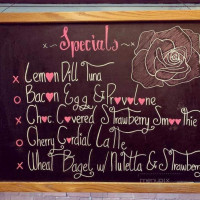 Specials
x Lemon Dill Tuna
o Bacon Egg & Provolone
x Choc. Covered Strawberry Smoothie
o Cherry Cordial Latte
x Wheat Bagel w/ Nutella & Strawberry